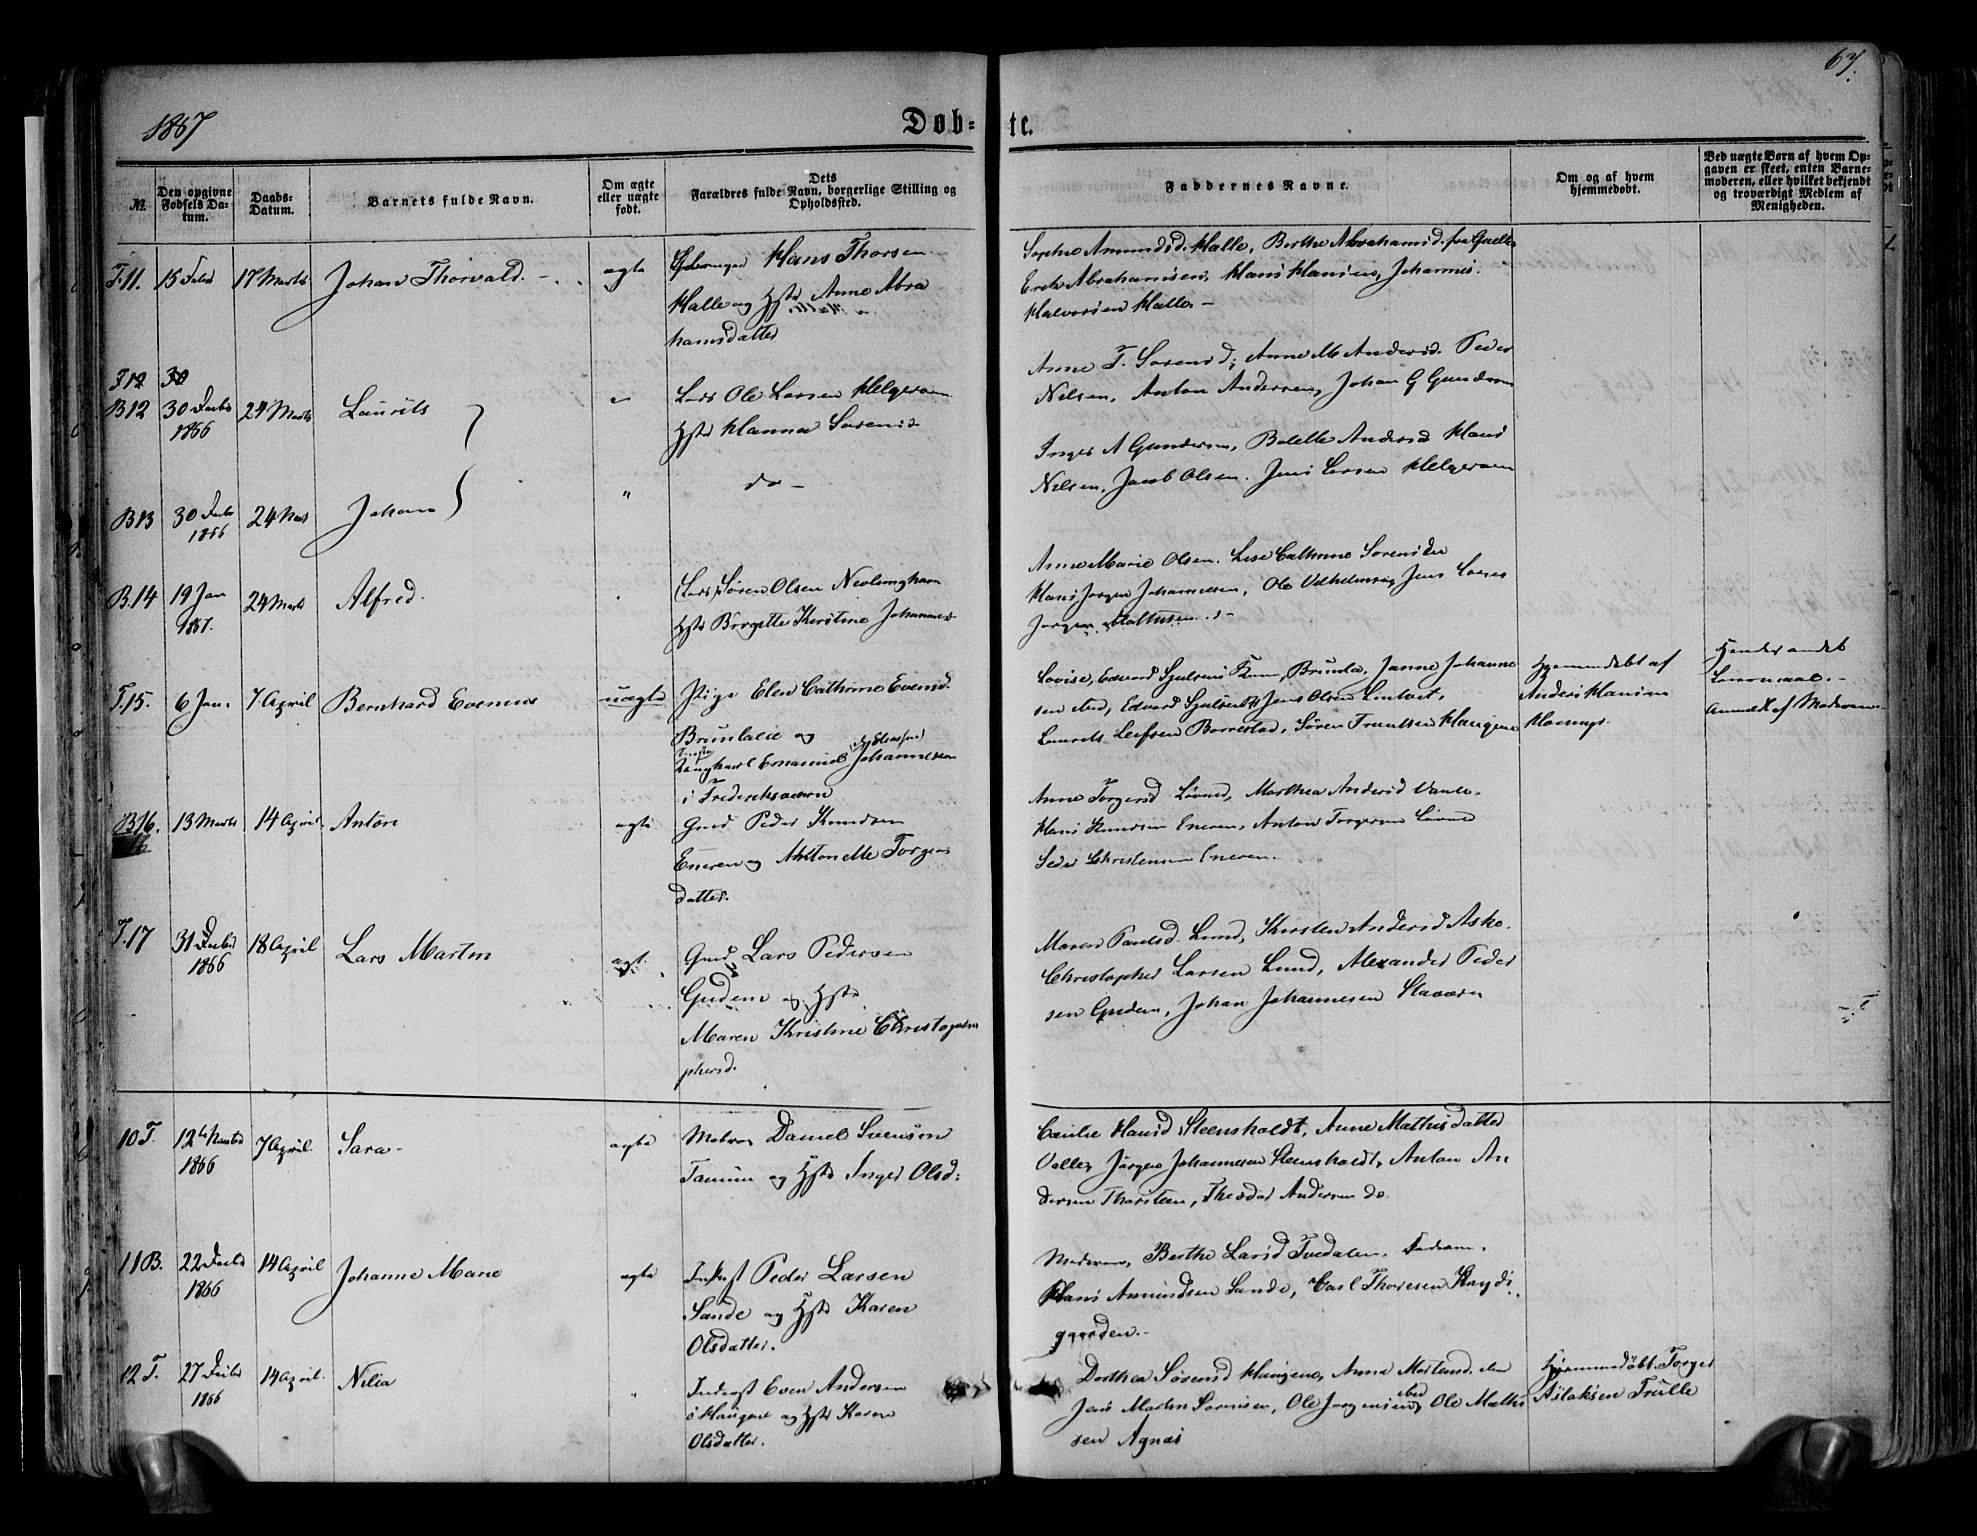 67.
1867
Døb-
te.
№
Den opgivne Fødsels Da-tum.
Daabs-Datum.
Barnets fulde Navn.
Om ægte eller uægte født.
Dets Forældres fulde Navn, borgerlige Stilling og Opholdssted.
Faddernes Navne.
Om og af hvem hjemmedøbt.
Ved uægte Børn af hvem Op-gaven er skeet, enten Barne-moderen, eller hvilket bekjendt og troværdigt Medlem af Menigheden.
T.11. 15 Febr 17 Marts Johan Thorvald. - ægte Hans Thorsen
Halle og Hstr Anne Abra
hamsdatter
Sophie Amundsd. Halle, Berthe Abrahamsd. fra
Erik Abrahamsen, Hans Hansen, Johannes
Halvorsen Halle. -
T12 30
B12 30 Decbr 1866 24 Marts Laurits
Lars Ole Larsen Helgeroen
Hstr Hanna Sørensd
Anne T. Sørensd, Anne M Andersd. Peder
Nielsen, Anton Andersen, Johan G Gundersen
B13 30 Decbr 1866 24 Marts Johan " do -
Inger A Gundersen, Bolette Andersd Hans
Nilsen, Jacob Olsen. Jens Larsen Helgeroen
B.14 19 Jan 1867. 24 Marts Alfred.
(Lods) Søren Olsen Nevlunghavn
Hstr Birgitte Kirstine Johannesd
Anne Marie Olsen. Lise Cathrine Sørensdtr
Hans Jørgen Johannesen, Ole Vilhelmsen, Jens Larsen
Jørgen Mathisen
T.15. 6 Jan. 7 April Bernhard Evenius uægte Pige Elen Cathrine Evensd.
Brunlaeie og
Ungkarl Emanuel Johannesen
i Frederiksværn
Lovise, Edvard Sjulsens Kone, Brunla, Janne Johanne
sen ibid, Edvard Sjulsen, Jens Olsen
Laurits Leifsen Borrestad, Søren Trulsen Haugene
Hjemmedøbt af
Anders Hansen
Hendes andet
Leiermaal. -
Anmeldt af Moderen
B16. 13 Marts 14 April. Anton ægte Gmd Peder Knudsen
Eneren og Antonette Torgers
datter.
Anne Torgersd Løvald, Marthea Andersd
Hans Knudsen Eneren, Anton Torgersen
Peder Christensen Eneren.
T.17 31 Decbr 1866 18 April Lars Martin ægt. Gmd Lars Pedersen
Gudem og Hstr
Maren Kristine Christo
phersd.
Maren Paulsd. Lund, Kirsten Andersd Aske.
Christopher Larsen Lund, Alexander Peder
sen Gudem, Johan Johannesen Stavern
10 T. 12te Novbr 1866 7 April. Sara - ægte Daniel Svensen
Tanum og Hstr Inger Olsd:
Cecilie Hansd Steensholdt, Anne Mathisdatter
Valle, Jørgen Johannesen Steensholdt, Anton An
dersen Thorsteen, Theodor Andersen do.
11 B. 22 Decbr 1866 14 April Johanne Marie ægte Inderst Peder Larsen
Sande og Hstr Karen
Olsdatter.
Moderen, Berthe Larsd Tvedalen. Faderen.
Hans Amundsen Sande, Carl Thoresen
gaarden. -
12 T. 27 Decbr 1866 14 April. Nilia " Inderst Even Andersen
Haugene og Hstr Karen
Olsdatter.
Dorthea Sørensd Haugene, Anna Mortensd. ibid
Jens Martin Sørensen, Ole Jørgensen ibid, Ole Mathi
sen Agnæs
Hjemmedøbt. Torger
Aslaksen Trulle